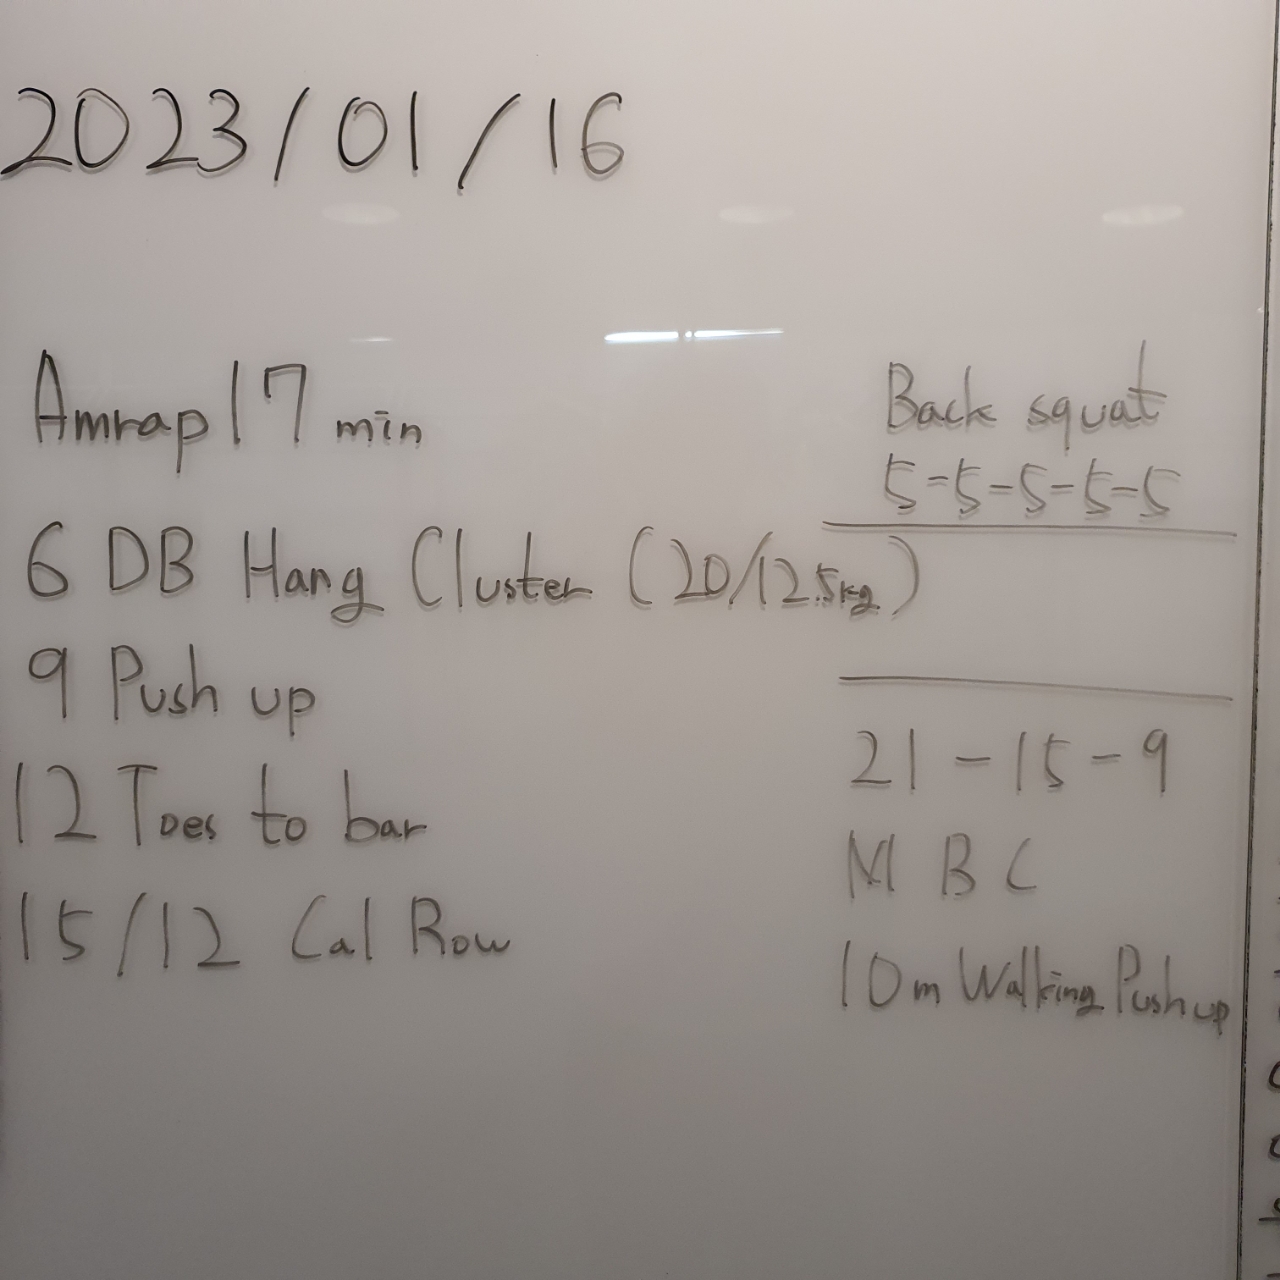 2023/01/16
Amrap 17 min
6 DB Hang Cluster (20/12.5kg)
9 Push up
12 Toes to bar
15/12 Cal Row
Back squat
5-5-5-5-5
21-15-9
M B C
10m Walking Push up